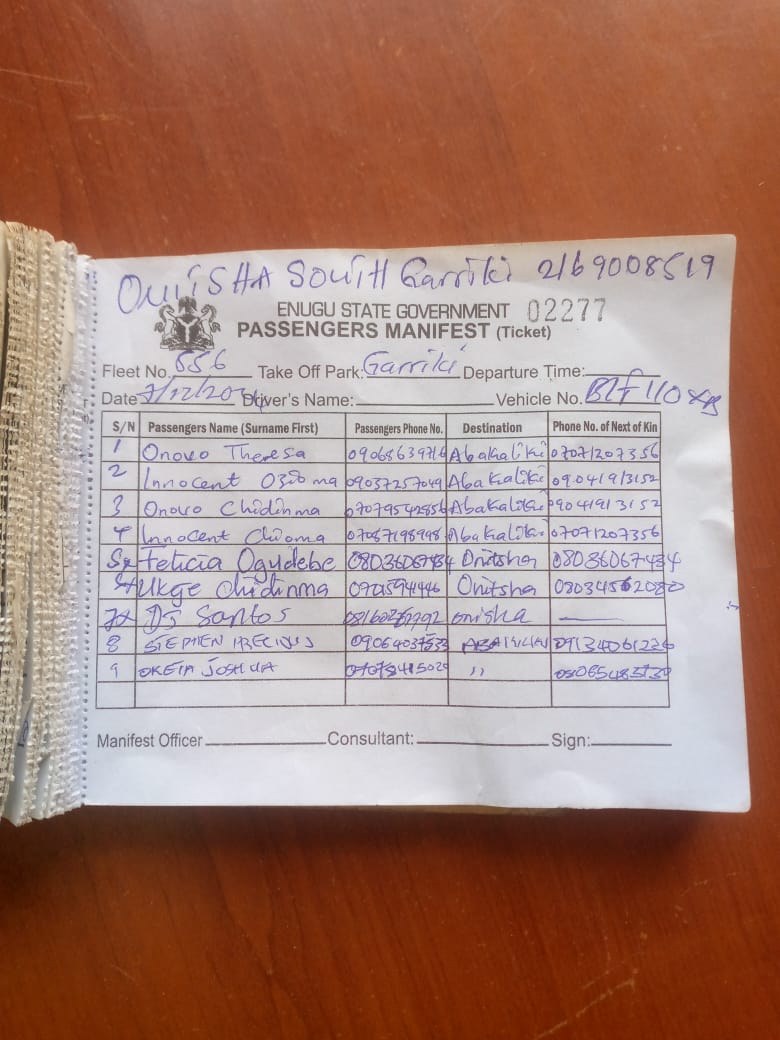 ONISHA SOUTH Garriki 2169008519
ENUGU STATE GOVERNMENT 02277
PASSENGERS MANIFEST (Ticket)
Fleet No. 556 Take Off Park: Garriki Departure Time:
Date 7/12/2024 Driver's Name: Vehicle No. 110 XB
S/N Passengers Name (Surname First) Passengers Phone No. Destination Phone No. of Next of Kin
1 Onovo Theresa 09068639716 Abakaliki 07071207356
2 Innocent 09037257049 Abakaliki 09041913152
3 Onovo Chidinma 07079542856 Abakaliki 09041913152
4 Innocent Chioma 07087198998 Abakaliki 07071207356
5 Felicia Ogudebe 08036067434 Onitsha 08036067434
Ukge Chidinma Onitsha 08034562080
7 DJ Santos onisha
8 STEPHEN PRECIOUS 09064037533 09134061226
9 JOSHUA "
Manifest Officer Consultant: Sign: